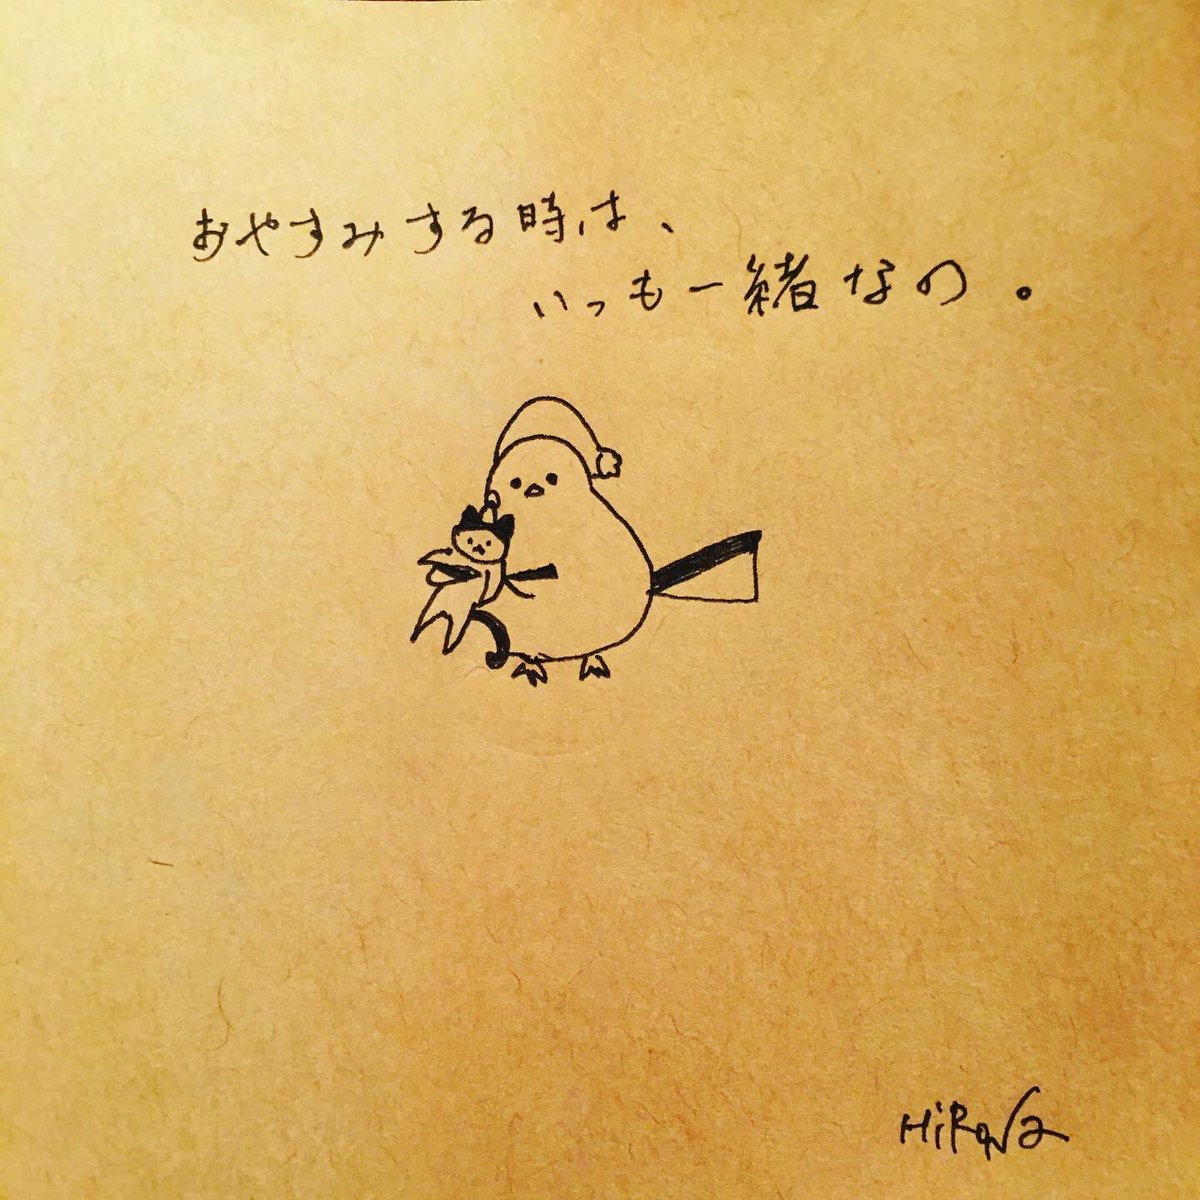 おやすみする時は、
いつも一緒なの。